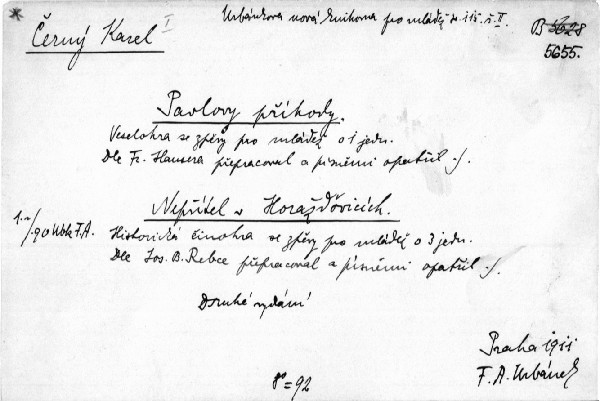 * Černý Karel I
Urbánkova nová knihovna pro mládež II.
B 5628
5655.
Pavlovy příhody.
Veselohra se zpěvy pro mládež o 1 jedn.
Dle Fr. Hausera přepracoval a písněmi opatřil ./.
Nepřítel v Horažďovicích.
Historická činohra se zpěvy pro mládež o 3 jedn.
Dle Jos. B. Rebce přepracoval a písněmi opatřil ./.
Druhé vydání
Praha 1911
F. A. Urbánek
8° = 92